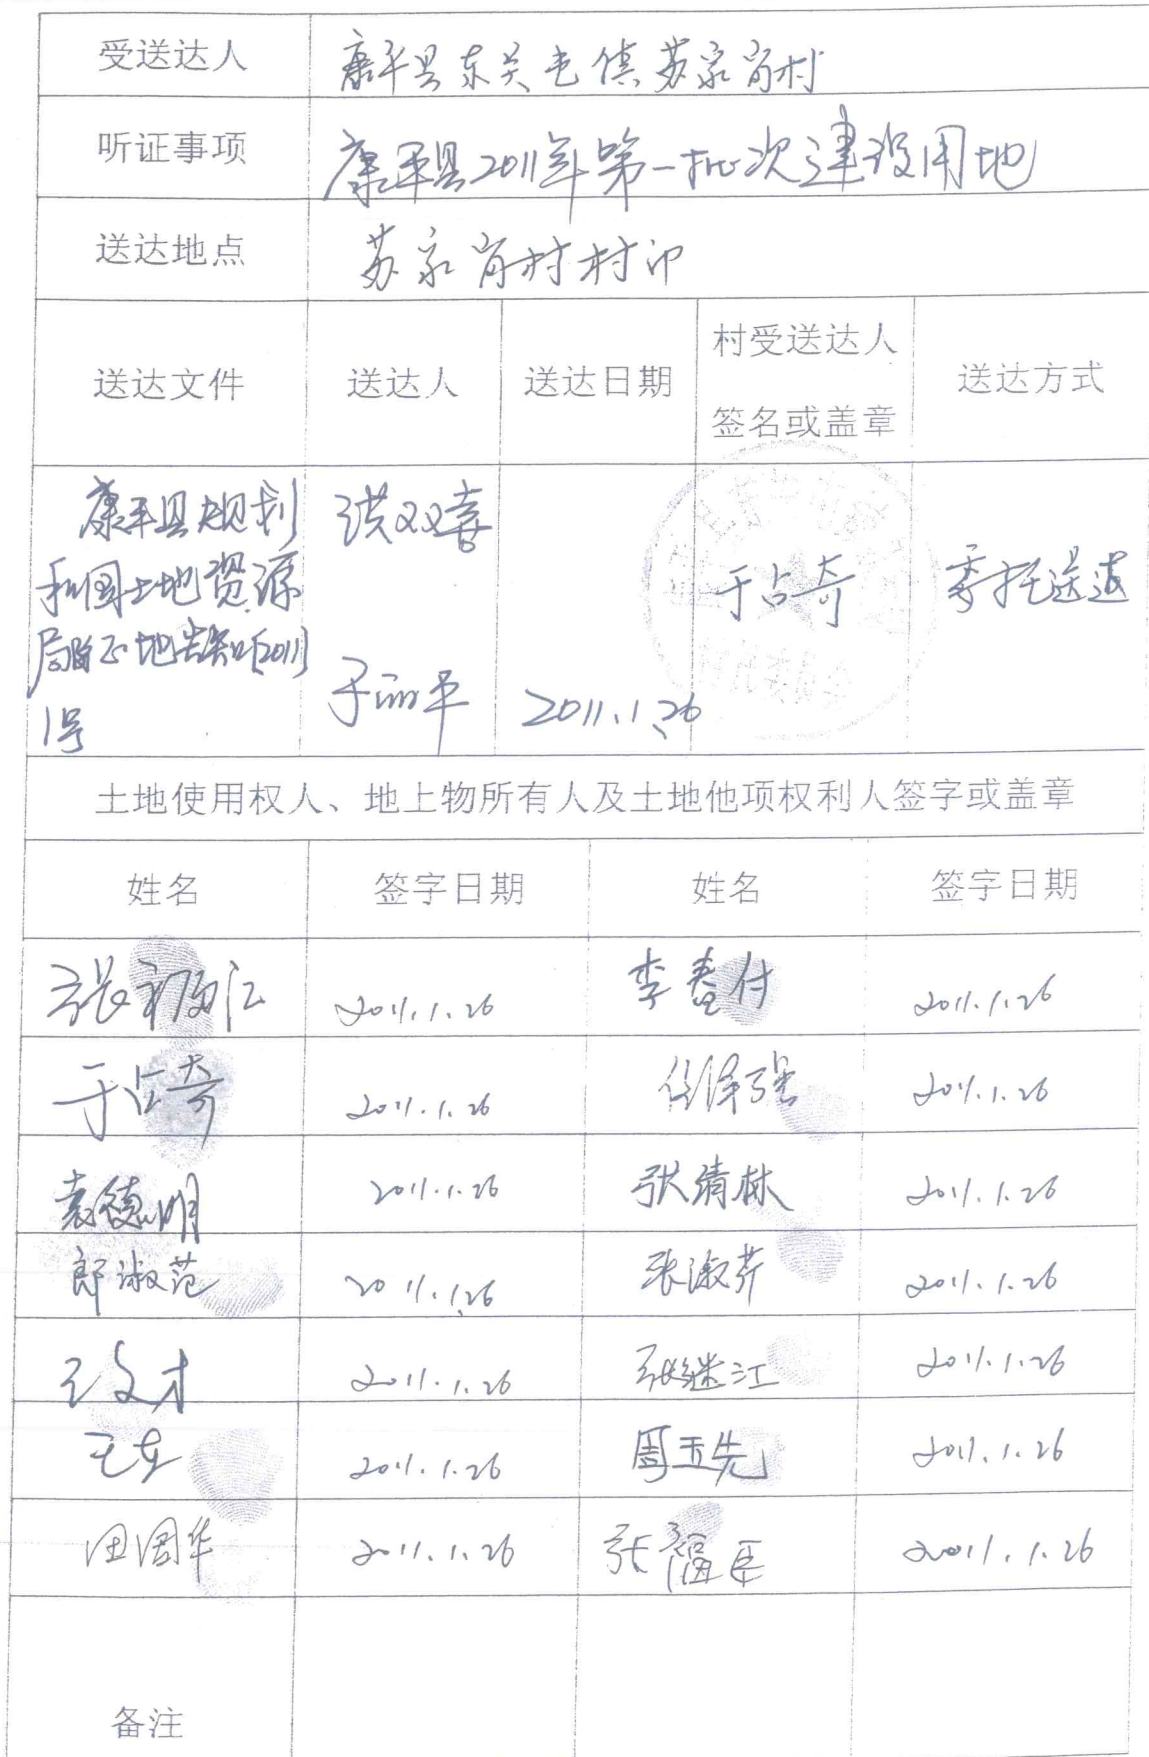 受送达人 康平县东关屯镇苏家岗村
听证事项 康平县2011年第一批次建设用地
送达地点 苏家岗村村
送达文件 送达人 送达日期 村受送达人签名或盖章 送达方式
康平县规划 洪双喜
和国土地资源 于占奇 委托送达
局 地告知[2011]
1号 于丽平 2011.1.26
土地使用权人、地上物所有人及土地他项权利人签字或盖章
姓名 签字日期 姓名 签字日期
张福江 2011.1.26 李春付 2011.1.26
于占奇 2011.1.26 强 2011.1.26
袁德明 2011.1.26 张清林 2011.1.26
郎淑范 2011.1.26 张淑芹 2011.1.26
王文才 2011.1.26 张继江 2011.1.26
王 2011.1.26 周玉先 2011.1.26
田国华 2011.1.26 张福臣 2011.1.26
备注